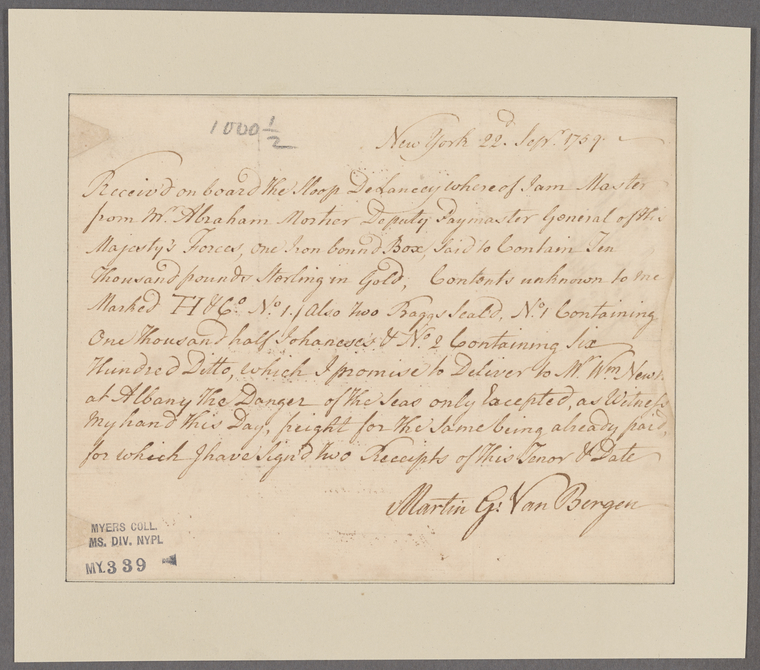 1000 1/2
New York 22d Sepr. 1759
Receiv'd on board the Sloop DeLancey whereof I am Master
from Mr. Abraham Mortier Deputy Paymaster General of His
Majesty's Forces, one Iron bound Box, Said to Contain Ten
Thousand pounds Sterling in Gold, Contents unknown to me
Marked H & Co. No. 1. / Also two Baggs Seal'd, No. 1 Containing
One Thousand half Johaneses & No. 2 Containing Six
Hundred Ditto, which I promise to Deliver to Mr. Wm. News.
at Albany the Danger of the Seas only Excepted, as Witness
my hand this Day, freight for the Same being already paid,
for which I have Sign'd two Receipts of this Tenor & Date
Martin G: Van Bergen
MYERS COLL.
MS. DIV. NYPL
MY.339